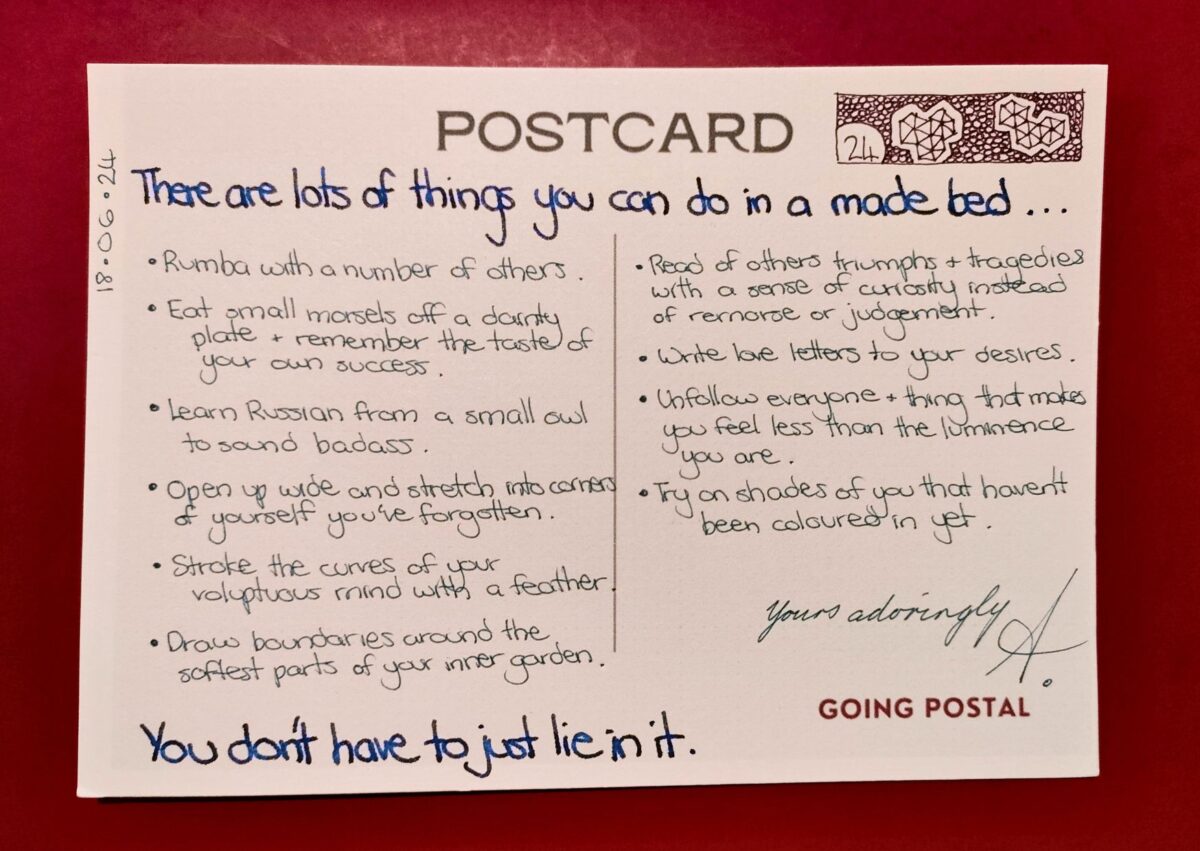 POSTCARD
24
18.06.24
There are lots of things you can do in a made bed ...
• Rumba with a number of others.
• Eat small morsels off a dainty
plate + remember the taste of
your own success.
• Learn Russian from a small owl
to sound badass.
• Open up wide and stretch into corners
of yourself you've forgotten.
• Stroke the curves of your
voluptuous mind with a feather.
• Draw boundaries around the
softest parts of your inner garden.
• Read of others triumphs + tragedies
with a sense of curiosity instead
of remorse or judgement.
• Write love letters to your desires.
• Unfollow everyone + thing that makes
you feel less than the luminence
you are.
• Try on shades of you that haven't
been coloured in yet.
Yours adoringly
A.
GOING POSTAL
You don't have to just lie in it.